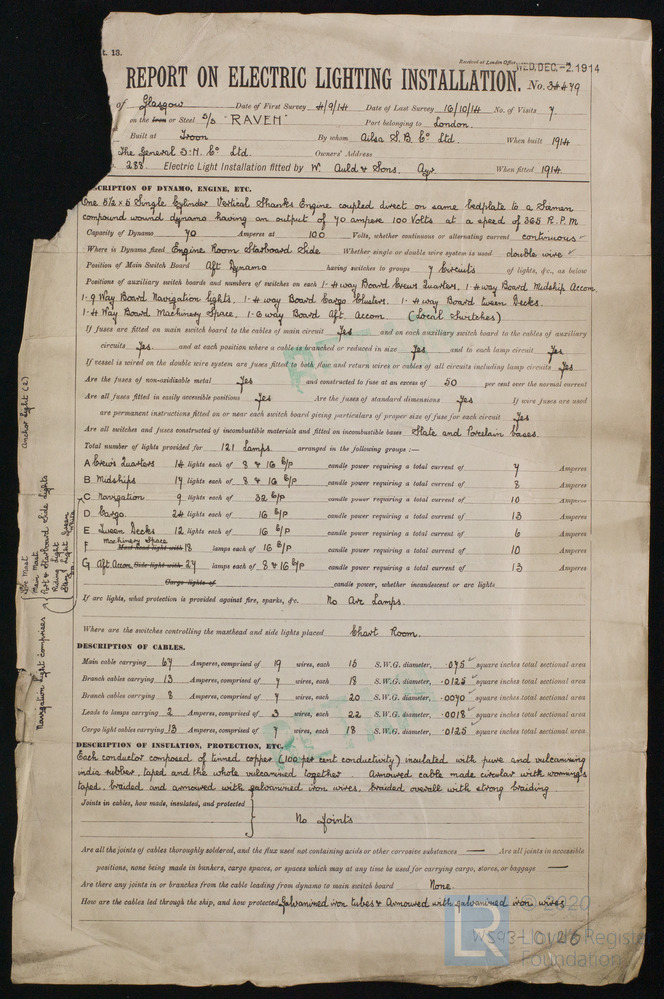 t. 13.
Received at London Office WED. DEC. -2. 1914
REPORT ON ELECTRIC LIGHTING INSTALLATION. No. 34479
of Glasgow Date of First Survey 4/9/14 Date of Last Survey 16/10/14 No. of Visits 7
on the Iron or Steel S/S "RAVEN" Port belonging to London.
Built at Troon By whom Ailsa S.B. Co Ltd. When built 1914
The General S.N. Co Ltd. Owners' Address
288 Electric Light Installation fitted by W. Auld & Sons. Ayr When fitted 1914
DESCRIPTION OF DYNAMO, ENGINE, ETC.
One 5½ x 5 Single Cylinder Vertical Shanks Engine coupled direct on same bedplate to a Siemen
compound wound dynamo having an output of 70 ampere 100 Volts at a speed of 365 R.P.M
Capacity of Dynamo 70 Amperes at 100 Volts, whether continuous or alternating current continuous
Where is Dynamo fixed Engine Room Starboard Side Whether single or double wire system is used double wire
Position of Main Switch Board Aft Dynamo having switches to groups 7 Circuits of lights, &c., as below
Positions of auxiliary switch boards and numbers of switches on each 1-4 way Board Crews Quarters. 1-4 way Board Midship Accom
1-9 Way Board Navigation lights. 1-4 way Board Cargo Clusters. 1-4 way Board tween Decks.
1-4 Way Board Machinery Space. 1-6 way Board Aft. Accom. (Local Switches)
If fuses are fitted on main switch board to the cables of main circuit Yes and on each auxiliary switch board to the cables of auxiliary
circuits Yes. and at each position where a cable is branched or reduced in size Yes and to each lamp circuit Yes
If vessel is wired on the double wire system are fuses fitted to both flow and return wires or cables of all circuits including lamp circuits Yes
Are the fuses of non-oxidizable metal Yes and constructed to fuse at an excess of 50 per cent over the normal current
Are all fuses fitted in easily accessible positions Yes Are the fuses of standard dimensions Yes If wire fuses are used
are permanent instructions fitted on or near each switch board giving particulars of proper size of fuse for each circuit Yes
Are all switches and fuses constructed of incombustible materials and fitted on incombustible bases Slate and Porcelain bases.
Total number of lights provided for 121 Lamps. arranged in the following groups :—
A Crew's Quarters 14 lights each of 8 & 16 C/P candle power requiring a total current of 7 Amperes
B Midships 17 lights each of 8 & 16 C/P candle power requiring a total current of 8 Amperes
C Navigation 9 lights each of 32 C/P candle power requiring a total current of 10 Amperes
D Cargo 24 lights each of 16 C/P candle power requiring a total current of 13 Amperes
E Tween Decks 12 lights each of 16 C/P candle power requiring a total current of 6 Amperes
F Machinery Space Mast head light with 18 lamps each of 16 C/P candle power requiring a total current of 10 Amperes
G Aft Accom Side light with 27 lamps each of 8 & 16 C/P candle power requiring a total current of 13 Amperes
Cargo lights of candle power, whether incandescent or arc lights
If arc lights, what protection is provided against fire, sparks, &c. No Arc Lamps.
Where are the switches controlling the masthead and side lights placed Chart Room.
DESCRIPTION OF CABLES.
Main cable carrying 67 Amperes, comprised of 19 wires, each 15 S.W.G. diameter, .075 square inches total sectional area
Branch cables carrying 13 Amperes, comprised of 7 wires, each 18 S.W.G. diameter, .0125 square inches total sectional area
Branch cables carrying 8 Amperes, comprised of 7 wires, each 20 S.W.G. diameter, .0070 square inches total sectional area
Leads to lamps carrying 2 Amperes, comprised of 3 wires, each 22 S.W.G. diameter, .0018 square inches total sectional area
Cargo light cables carrying 13 Amperes, comprised of 7 wires, each 18 S.W.G. diameter, .0125 square inches total sectional area
DESCRIPTION OF INSULATION, PROTECTION, ETC.
Each conductor composed of tinned copper (100 per cent conductivity) insulated with pure and vulcanising
india rubber, taped and the whole vulcanised together. Armoured cable made circular with wormings
taped, braided and armoured with galvanized iron wires, braided overall with strong braiding
Joints in cables, how made, insulated, and protected
No Joints
Are all the joints of cables thoroughly soldered, and the flux used not containing acids or other corrosive substances — Are all joints in accessible
positions, none being made in bunkers, cargo spaces, or spaces which may at any time be used for carrying cargo, stores, or baggage —
Are there any joints in or branches from the cable leading from dynamo to main switch board None.
How are the cables led through the ship, and how protected Galvanized iron tubes & Armoured with galvanized iron wires
Navigation light comprises
Fore Mast
Main Mast
Port & Starboard Side lights
Riding light
Stern light
Anchor light (2)
W593-0126
LR
© 2020
Lloyd's Register
Foundation